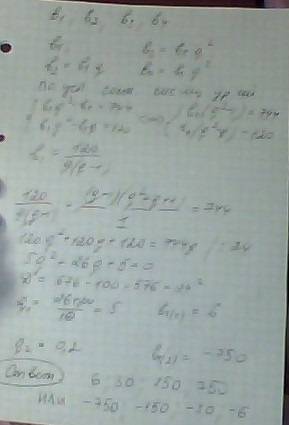 b₁, b₂, b₃, b₄
b₁, b₃ = b₁q²
b₂ = b₁q b₄ = b₁q³
{ b₁q³ - b₁ = 744 <=> { b₁(q³-1) = 744
{ b₁q² - b₁q = 120 { b₁(q²-q) = 120
b₁ = 120 / q(q-1)
120 / q(q-1) · (q-1)(q²+q+1) / 1 = 744
120q² + 120q + 120 = 744q | : 24
5q² - 26q + 5 = 0
D = 676 - 100 = 576 = 24²
q₁ = = 5 b₁₍₁₎ = 6
q₂ = 0,2 b₁₍₂₎ = -750
Ответ
6 30 150 750
или -750 -150 -30 -6